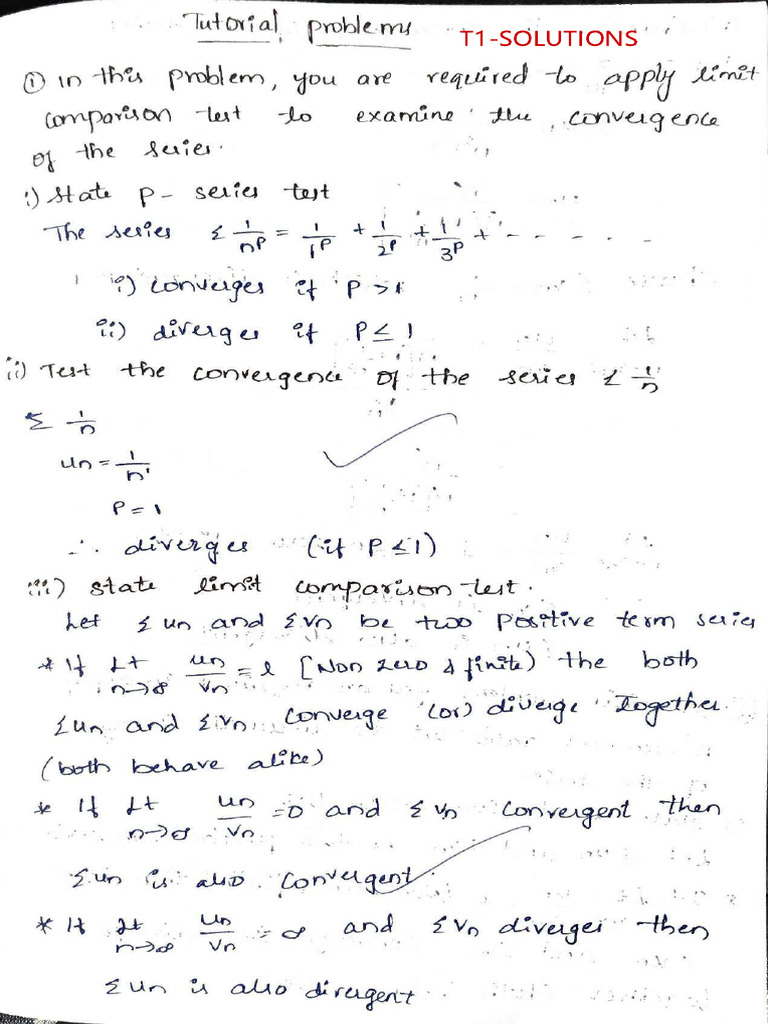 Tutorial problems
T1-SOLUTIONS
① In this problem, you are required to apply limit
comparison test to examine the convergence
of the series.
i) State p- series test
The series Σ 1/n^p = 1/1^p + 1/2^p + 1/3^p + - - - - -
i) converges if P > 1
ii) diverges if P ≤ 1
ii) Test the convergence of the series Σ 1/n
Σ 1/n
un = 1/n^1
P = 1
∴ diverges (if P ≤ 1)
iii) state limit comparison test.
Let Σun and Σvn be two positive term series
* If Lt n→∞ un/vn = l [Non zero & finite) the both
Σun and Σvn converge (or) diverge together.
(both behave alike)
* If Lt n→∞ un/vn = 0 and Σvn convergent then
Σun is also convergent.
* If Lt n→∞ un/vn = ∞ and Σvn diverges then
Σun is also divergent